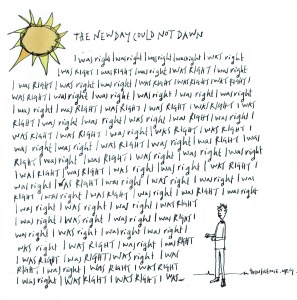 THE NEW DAY COULD NOT DAWN
I was right I was right I was right I was right I was right
I was RIGHT I was right I was right I WAS RIGHT I was right
I was RIGHT I was right I was RIGHT I was right I was RIGHT I was
WAS RIGHT I was right I was right I was right I was right I was
right I was RIGHT I was right I was RIGHT I WAS RIGHT I WAS
RIGHT I was right I was right I was RIGHT I was right I was right
WAS RIGHT I WAS RIGHT I was right I was RIGHT I WAS RIGHT I
was right I was right I was right I was right I was RIGHT I was
right I was right I was RIGHT I was right I was right I was right
I was RIGHT I was RIGHT I was right I was right I was RIGHT I
was right I was RIGHT I was right I was RIGHT I was right I was
right I was right I was RIGHT I was right I was RIGHT I was right
I was right I was right I was right I was RIGHT
I was right I WAS right I was right I was RIGHT
I was right I was right I was RIGHT I was right
was right I WAS RIGHT I was right I was RIGHT
I WAS RIGHT I was RIGHT I WAS right I was
RIGHT I was right I was RIGHT I WAS RIGHT
I was right I WAS RIGHT I WAS RIGHT I WAS